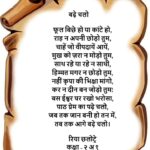 बढ़े चलो
फूल बिछे हो या कांटे हो,
राह न अपनी छोड़ो तुम,
चाहे जो विपदायें आयें,
मुख को जरा न मोड़ो तुम,
साथ रहे या रहे न साथी,
हिम्मत मगर न छोड़ो तुम,
नहीं कृपा की भिक्षा मांगो,
कर न दीन बन जोड़ो तुम,
बस ईश्वर पर रखो भरोसा,
पाठ प्रेम का पढ़े चलो,
जब तक जान बनी हो तन में,
तब तक आगे बढ़े चलो।
रिया
कक्षा - २ अ